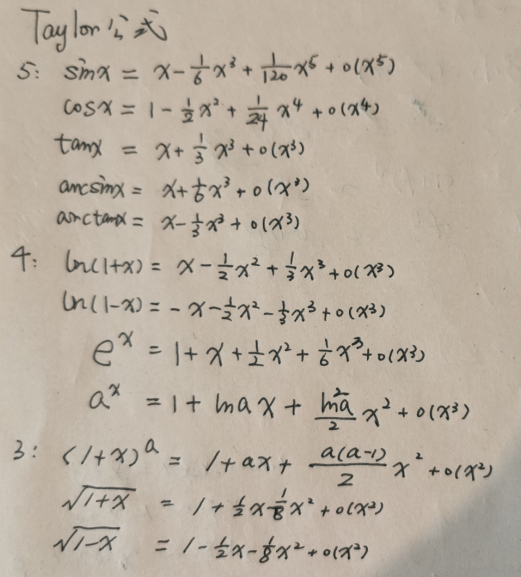 Taylor公式
5: sinx = x - 1/6 x³ + 1/120 x⁵ + o(x⁵)
cosx = 1 - 1/2 x² + 1/24 x⁴ + o(x⁴)
tanx = x + 1/3 x³ + o(x³)
arcsinx = x + 1/6 x³ + o(x³)
arctanx = x - 1/3 x³ + o(x³)
4: ln(1+x) = x - 1/2 x² + 1/3 x³ + o(x³)
ln(1-x) = -x - 1/2 x² - 1/3 x³ + o(x³)
eˣ = 1 + x + 1/2 x² + 1/6 x³ + o(x³)
aˣ = 1 + lna x + ln²a/2 x² + o(x³)
3: (1+x)ᵃ = 1 + ax + a(a-1)/2 x² + o(x²)
√(1+x) = 1 + 1/2 x - 1/8 x² + o(x²)
√(1-x) = 1 - 1/2 x - 1/8 x² + o(x²)